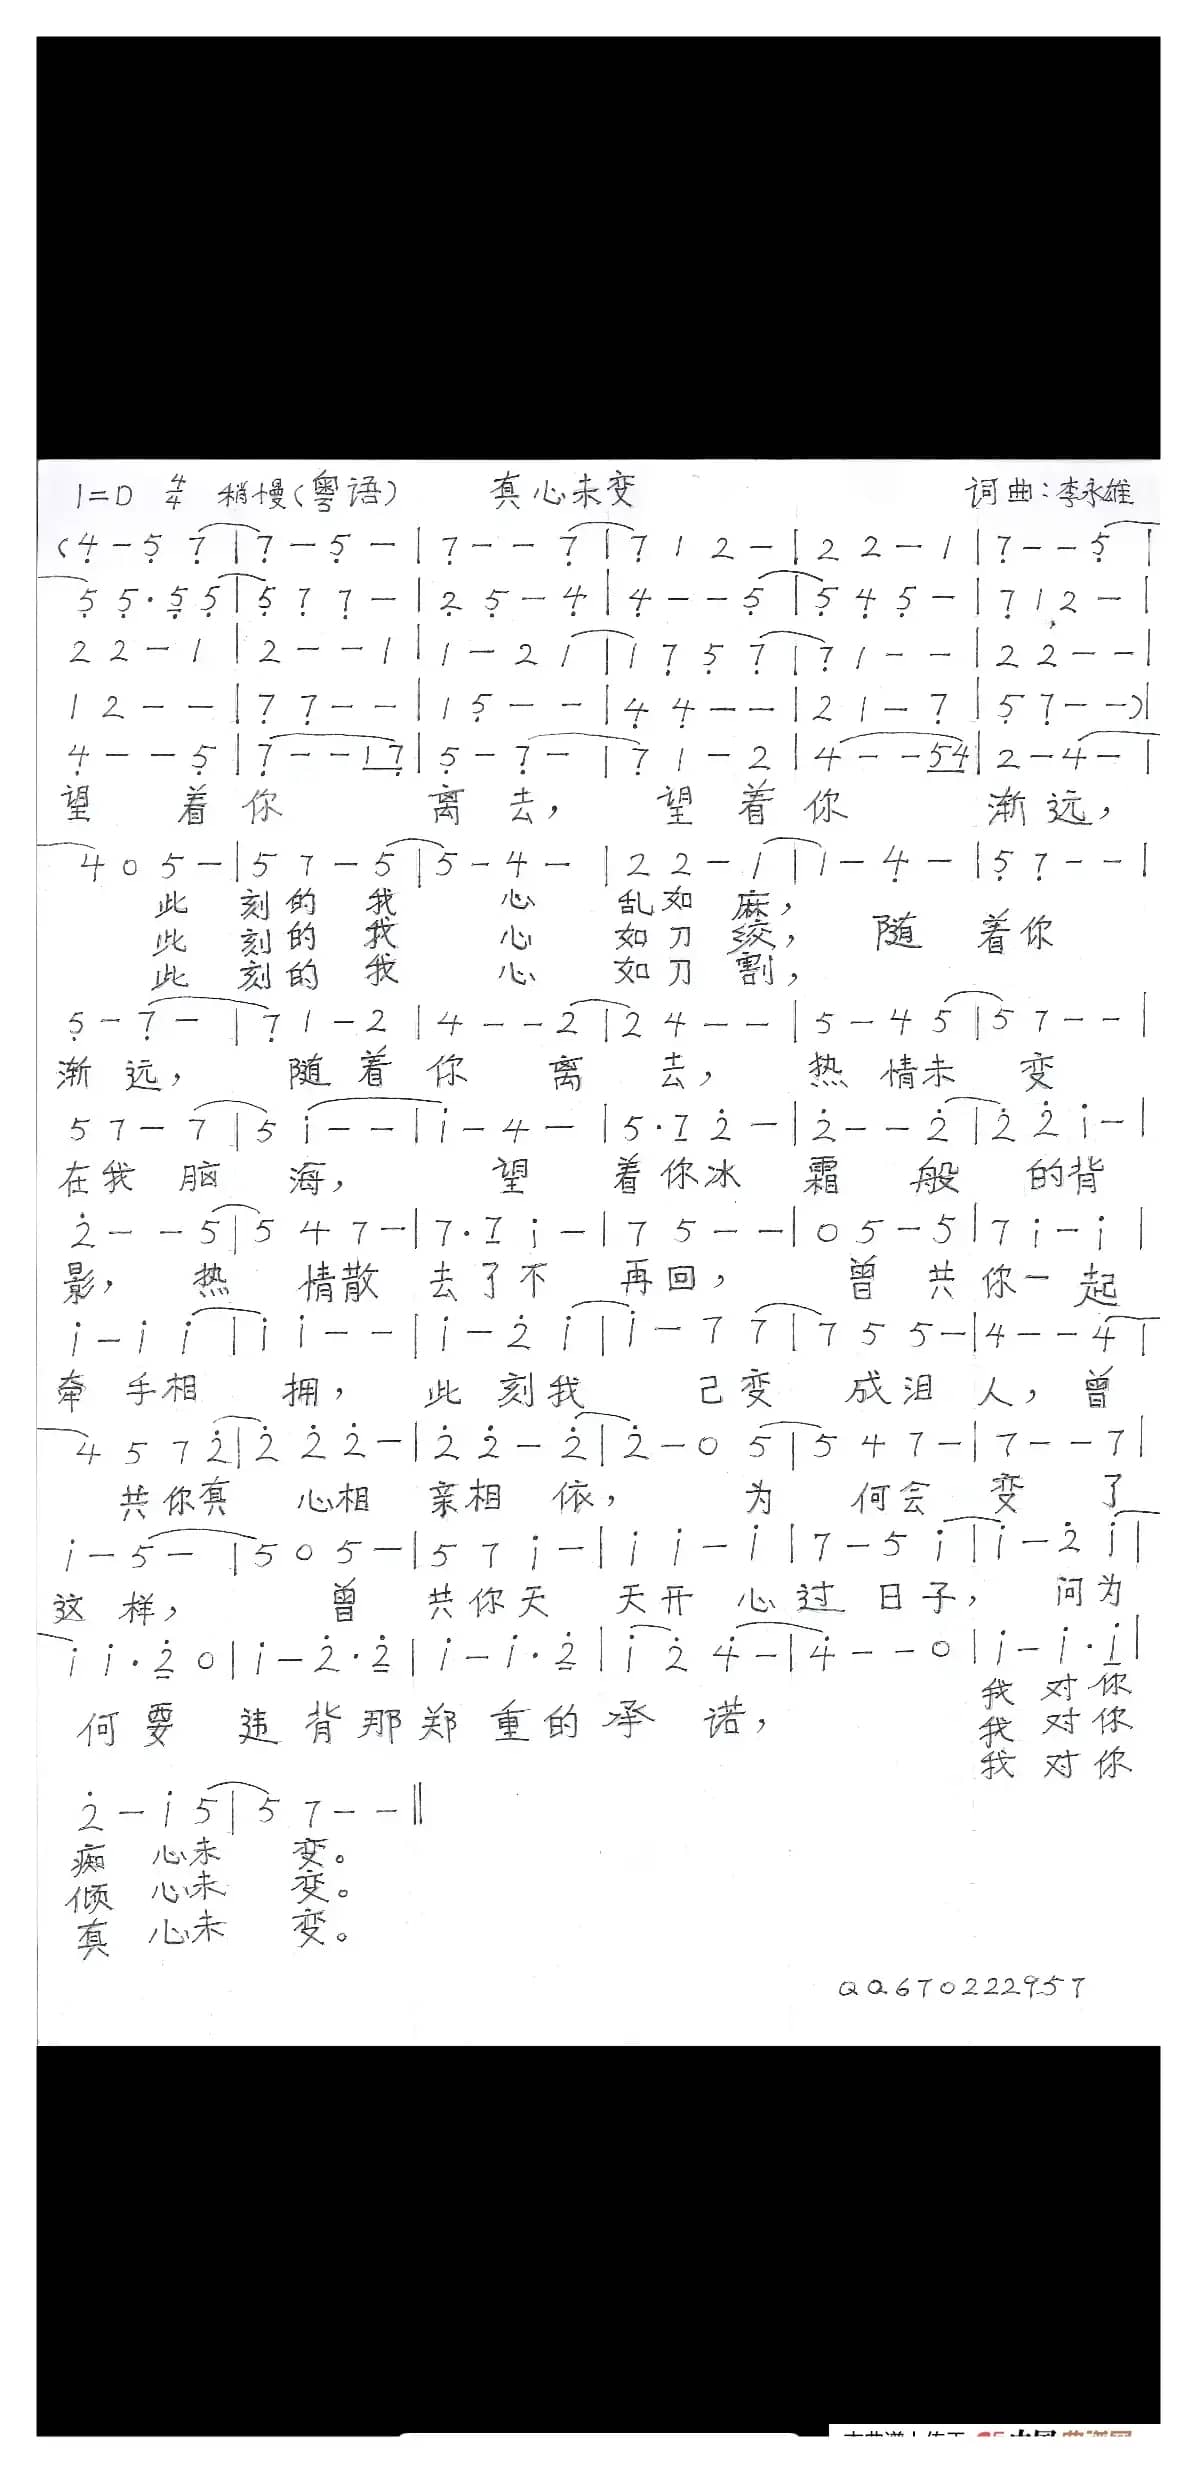 1=D 4/4 稍慢(粤语) 真心未变 词曲:李永雄
(4̣ - 5̣ 7̣ | 7̣ - 5̣ - | 7̣ - - 7̣ | 7̣ 1 2 - | 2 2 - 1 | 7̣ - - 5̣ |
5̣ 5̣· 5̣ 5̣ | 5̣ 7̣ 7̣ - | 2̣ 5̣ - 4̣ | 4̣ - - 5̣ | 5̣ 4̣ 5̣ - | 7̣ 1 2 - |
2 2 - 1 | 2 - - 1 | 1 - 2 1 | 1 7̣ 5̣ 7̣ | 7̣ 1 - - | 2 2 - - |
1 2 - - | 7̣ 7̣ - - | 1 5̣ - - | 4̣ 4̣ - - | 2 1 - 7̣ | 5̣ 7̣ - -)|
4̣ - - 5̣ | 7̣ - - 1 7̣ | 5̣ - 7̣ - | 7̣ 1 - 2 | 4 - - 5 4 | 2 - 4 - |
望 着 你 离 去, 望 着 你 渐 远,
4 0 5 - | 5 7 - 5 | 5 - 4 - | 2 2 - 1 | 1 - 4̣ - | 5̣ 7̣ - - |
此 刻 的 我 心 乱 如 麻,
此 刻 的 我 心 如 刀 绞, 随 着 你
此 刻 的 我 心 如 刀 割,
5̣ - 7̣ - | 7̣ 1 - 2 | 4 - - 2 | 2 4 - - | 5 - 4 5 | 5 7 - - |
渐 远, 随 着 你 离 去, 热 情 未 变
5 7 - 7 | 5 i - - | i - 4 - | 5· 7 2̇ - | 2̇ - - 2̇ | 2̇ 2̇ i - |
在 我 脑 海, 望 着 你 冰 霜 般 的 背
2̇ - - 5 | 5 4 7 - | 7· 7 i - | 7 5 - - | 0 5 - 5 | 7 i - i |
影, 热 情 散 去 了 不 再 回, 曾 共 你 一 起
i - i i | i i - - | i - 2̇ i | i - 7 7 | 7 5 5 - | 4 - - 4 |
牵 手 相 拥, 此 刻 我 己 变 成 泪 人, 曾
4 5 7 2̇ | 2̇ 2̇ 2̇ - | 2̇ 2̇ - 2̇ | 2̇ - 0 5 | 5 4 7 - | 7 - - 7 |
共 你 真 心 相 亲 相 依, 为 何 会 变 了
i - 5 - | 5 0 5 - | 5 7 i - | i i - i | 7 - 5 i | i - 2̇ i |
这 样, 曾 共 你 天 天 开 心 过 日 子, 问 为
i i· 2̇ 0 | i - 2̇· 2̇ | i - i· 2̇ | i 2̇ 4̇ - | 4̇ - - 0 | i - i· i |
我 对 你
何 要 违 背 那 郑 重 的 承 诺, 我 对 你
我 对 你
2̇ - i 5 | 5 7 - - ‖
痴 心 未 变。
倾 心 未 变。
真 心 未 变。
QQ670222957